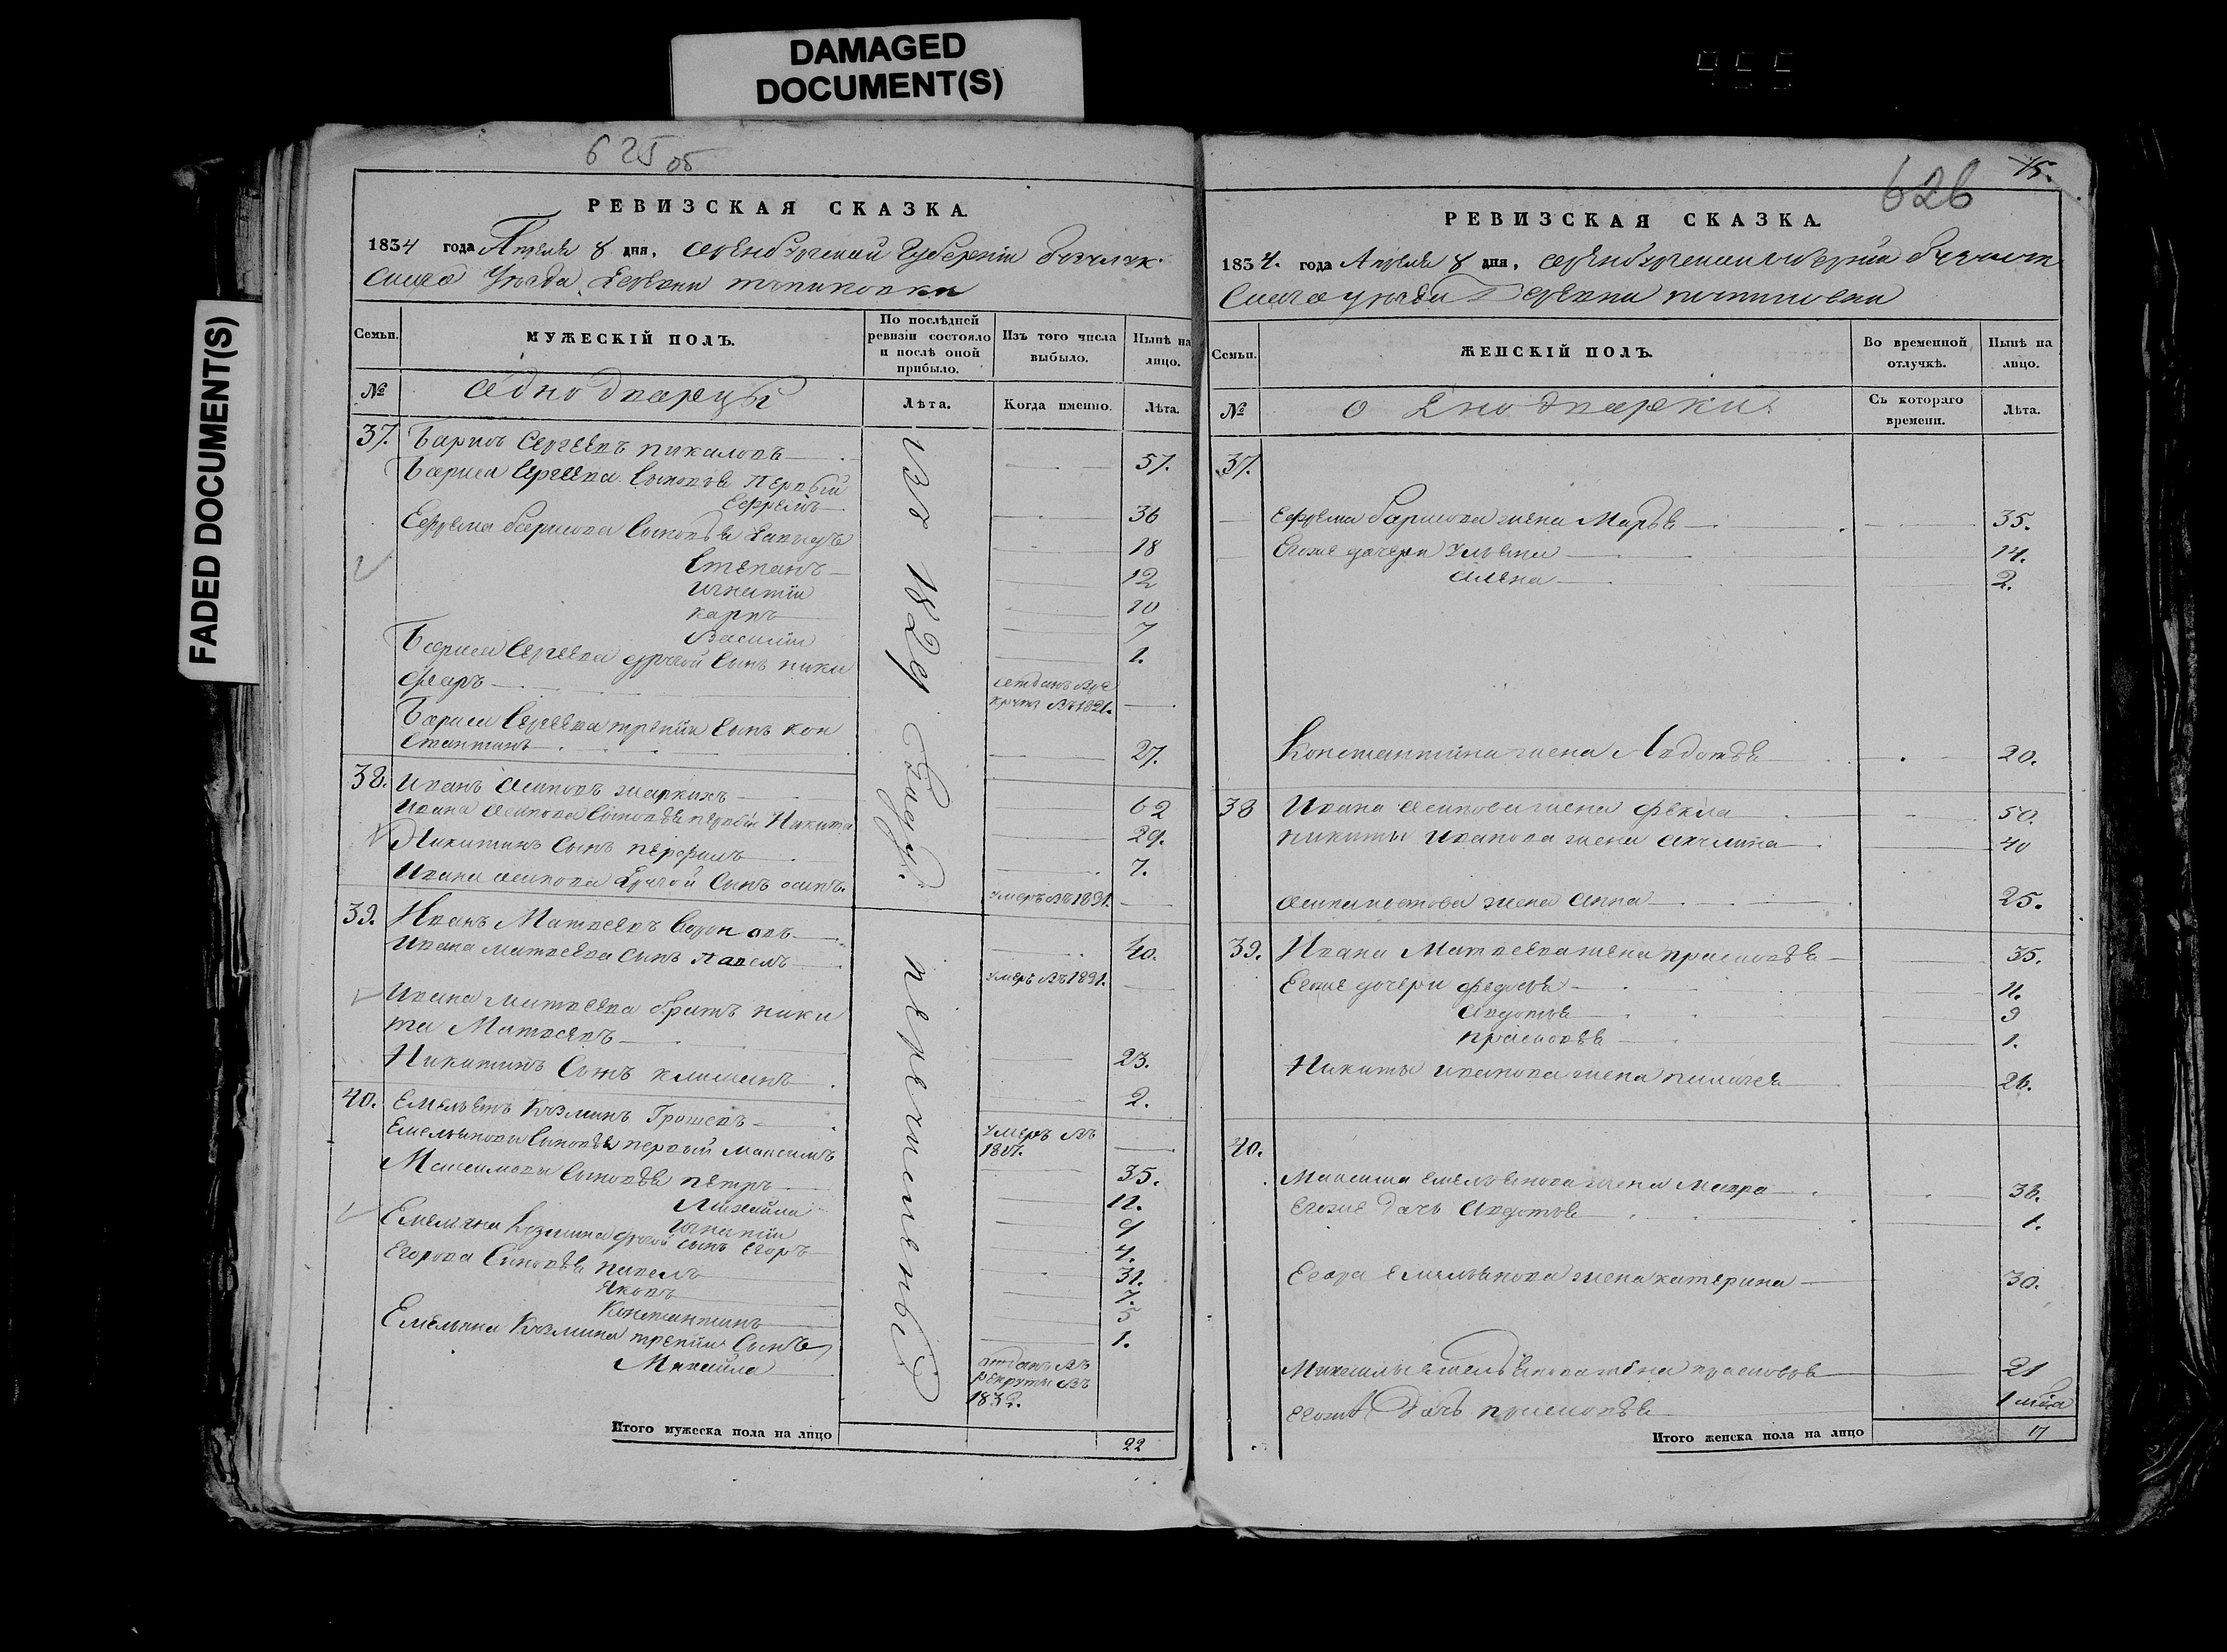 DAMAGED
DOCUMENT(S)
FADED DOCUMENT(S)
625 об
РЕВИЗСКАЯ СКАЗКА.
1834 года Апреля 8 дня, Оренбургской Губернiи Бузулук
скаго Уезда Деревни
Семьи.
МУЖЕСКIЙ ПОЛЪ.
По послѣдней ревизiи состояло и послѣ оной прибыло.
Изъ того числа выбыло.
Нынѣ на лицо.
№
Однодворцы
Лѣта.
Когда именно.
Лѣта.
въ 1829 Году перечислены
37. Барисъ Сергеевъ пикаловъ 57.
Бориса Сергеева Сыновья Первый
Ефремъ 36
Ефрема Борисова Сыновья Давыдъ 18
Степанъ 12
Игнатiи 10
карпъ 7
Василiи 1.
Бориса Сергеева другой Сынъ ники
форъ отданъ в ре
круты въ 1821.
Бориса Сергеева третiи Сынъ кон
стантинъ 27.
38. Иванъ Осиповъ жаркихъ 62
Ивана Осипова Сыновья первыи Никита 29.
Никитинъ Сынъ перфилъ 7.
Ивана осипова Другой Сынъ осипъ умеръ въ 1831.
39. Иванъ Матвеевъ Вороновъ 40.
Ивана матвеева сынъ Павелъ умеръ въ 1831.
Ивана матвеева братъ ники
та Матвеевъ 23.
Никитинъ Сынъ 2.
40. Емельянъ Кузминъ Грошевъ умеръ въ
18
Емельянова Сыновья первый Максимъ 35.
Максимовы Сыновья петръ 11.
Михайла 9
Игнатiи 4.
Емельяна Козмина другой сынъ Егоръ 31.
Егорова Сыновья павелъ 7.
Яковъ 5
Константинъ 1.
Емельяна Кузмина третiи Сынъ
Михайла отданъ въ
рекруты въ
1832.
Итого мужеска пола на лицо 22
626
15.
РЕВИЗСКАЯ СКАЗКА.
1834. года Апреля 8 дня, Оренбургской Губернiи Бузулук
скаго уезда Деревни
Семьи.
ЖЕНСКIЙ ПОЛЪ.
Во временной отлучкѣ.
Нынѣ на лицо.
№
Однодворки
Съ котораго времени.
Лѣта.
37.
Ефрема Борисова жена Марья 35.
Егоже дочери Ульяна 14.
Алена 2.
Константина жена Авдотья 20.
38 Ивана Осипова жена фекла 50.
никиты Иванова жена акулина 40
жена Анна 25.
39. Ивана Матвеева жена прасковья 35.
Егоже дочери федосья 11.
Авдотья 9
прасковья 1.
Никиты иванова жена пилагея 26.
40.
Максима емельянова жена Мавра 38.
Егоже дочь Авдотья 1.
Егора Емельянова жена катерина 30.
Михайлы емельянова жена прасковья 21
егоже дочь прасковья 1
Итого женска пола на лицо 17